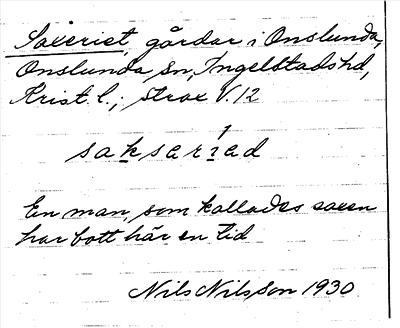 Saxeriet, gårdar i Onslunda,
Onslunda sn, Ingelstads hd,
Krist. l.; strax V. 12
sakseriad
En man, som kallades saxen
har bott här en tid
Nils Nilsson 1930